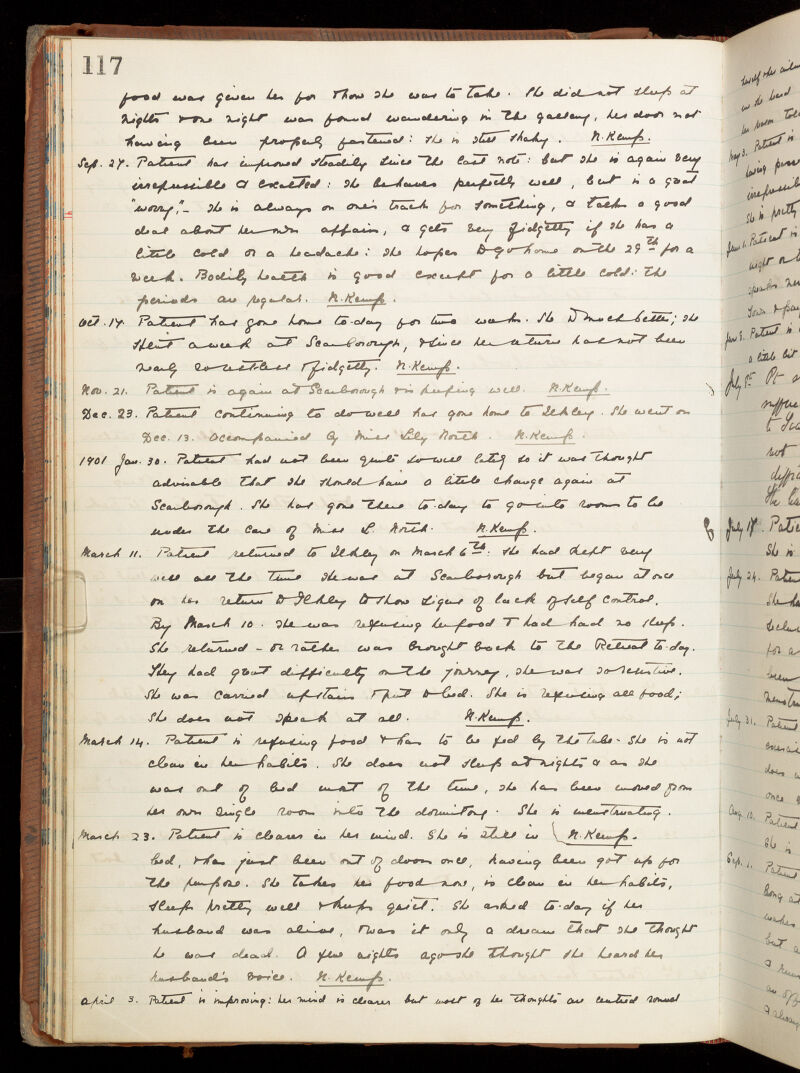 117
food was given her for & how she was to take. She did not sleep at
nights & one night was found wandering in the gallery, her door not
having been properly fastened: she is still shaky. N. Kemp.
Sep. 27. Patient has improved steadily since the last note: but she is again very
irrepressible & excited: she behaves perfectly well, but is a great
"worry,"- she is always on one's track for something, & talks a good
deal about her own affairs, & gets very fidgetty if she has a
little cold or a headache: she hopes to go home on the 29th for a
week. Bodily health is good except for a little cold: the
periods are regular. N. Kemp.
Oct. 14. Patient has gone home to-day for two weeks. She is much better; she
spent a week at Scarborough, & since her return has not been
nearly so restless & fidgetty. N. Kemp.
Nov. 21. Patient is again at Scarborough & is keeping well. N. Kemp.
Dec. 23. Patient continuing to do well has gone home to Ilkley. She went on
Dec. 13. accompanied by Miss Lily North. N. Kemp.
1901 Jan. 30. Patient had not been quite so well lately so it was thought
advisable that she should have a little change again at
Scarborough. She has gone there to-day to go into rooms to be
under the care of Miss L. North. N. Kemp.
March 11. Patient returned to Ilkley on March 6th: she had kept very
well all the time she was at Scarborough but began at once
on her return to Ilkley to show signs of lack of self control.
By March 10. she was refusing her food & had had no sleep.
She returned - or rather was brought back to the Retreat to-day.
They had great difficulty on the journey, she was so resistive.
She was carried upstairs & put to bed. She is refusing all food;
she does not speak at all. N. Kemp.
March 14. Patient is refusing food & has to be fed by the tube. She is not
clean in her habits. She does not sleep at nights & as she
was out of bed most of the time, she has been moved from
her own single room into the dormitory. She is menstruating.
March 23. Patient is clearer in her mind. She is still in ( N. Kemp.
bed, & has just been out of doors once, having been got up for
the purpose. She takes her food now, is clean in her habits,
sleeps pretty well & keeps quiet. She asked to-day if her
husband was alive, & was it only a dream that she thought
he was dead. A few nights ago she thought she heard her
husband's voice. N. Kemp.
April 3. Patient is improving: her mind is clearer but most of her thoughts are centred round
May 3. Patient is
She is pretty
Patient is
June 3. Patient is
a little bit
July 5th Pt.
not
July 18. Patie
She is
July 24. Patien
She ha
for a
been
menstru
July 31. Patient
does n
once
Aug. 12. Patient
She is
Sep. 1. Patient
but a